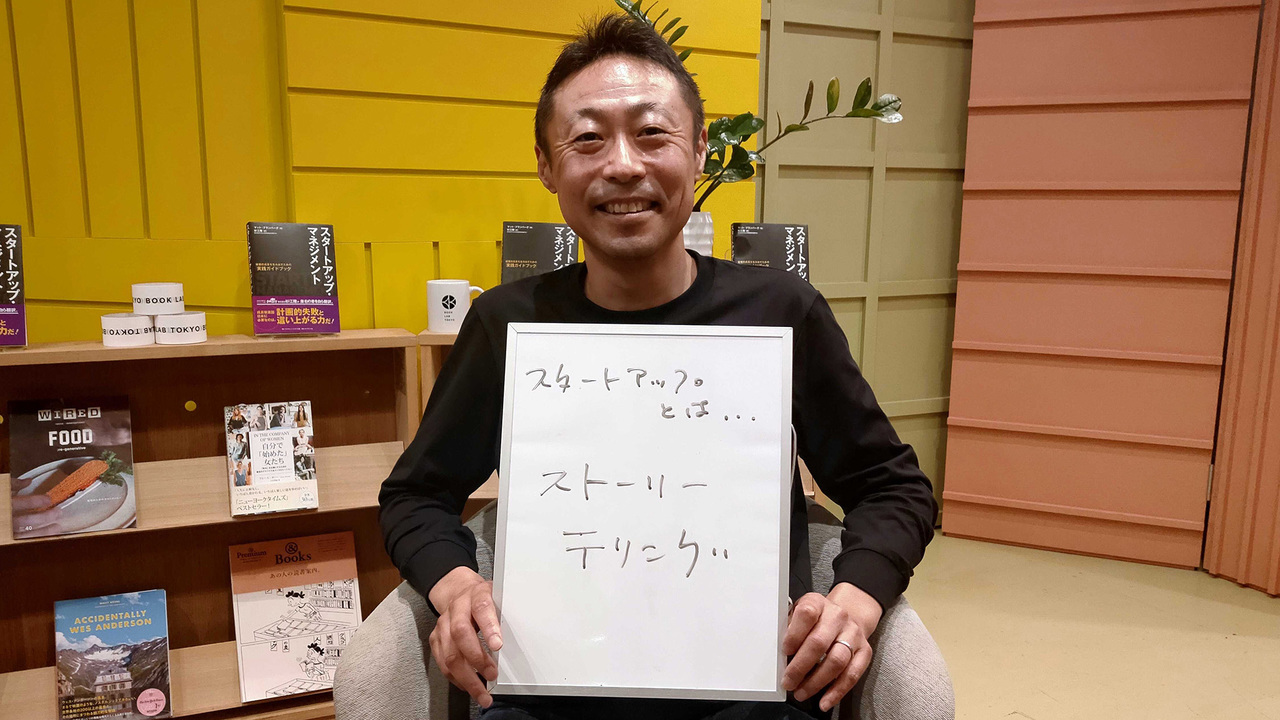 スタートアップ
とは...
ストーリー
テリング
スタートアップ・
マネジメント
実践ガイドブック
計画的失敗と
這い上がる力だ!
スタートアップ・
マネジメント
実践ガイドブック
スタートアップ・
マネジメント
YO BOOK LAB
TOKYO B
LAB TOKYO B
BOOK
LAB
TOKYO
WIRED
FOOD
re-generative
IN THE COMPANY
OF WOMEN
自分で
「始めた」
女たち
『ニューヨークタイムズ』
ベストセラー!
Premium
&
Books
あの人の読書案内。
ACCIDENTALLY
WES ANDERSON